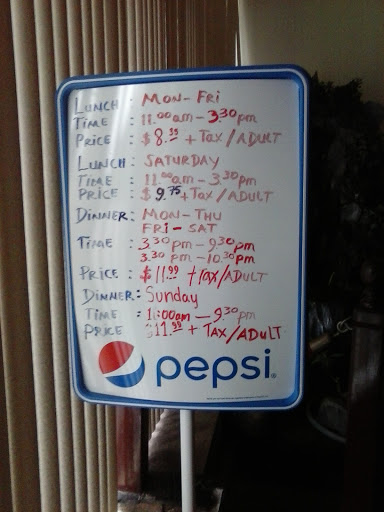 LUNCH : MON - FRI
TIME : 11.00am - 3.30pm
PRICE : $8.99 + TAX/ADULT
LUNCH : SATURDAY
TIME : 11.00am - 3.30pm
PRICE : $9.75 + TAX/ADULT
DINNER : MON - THU
FRI - SAT
TIME : 3.30 pm - 9.30 pm
3.30 pm - 10.30 pm
PRICE : $11.99 + TAX/ADULT
DINNER : Sunday
TIME : 11:00am - 9.30pm
PRICE : $11.99 + TAX/ADULT
pepsi